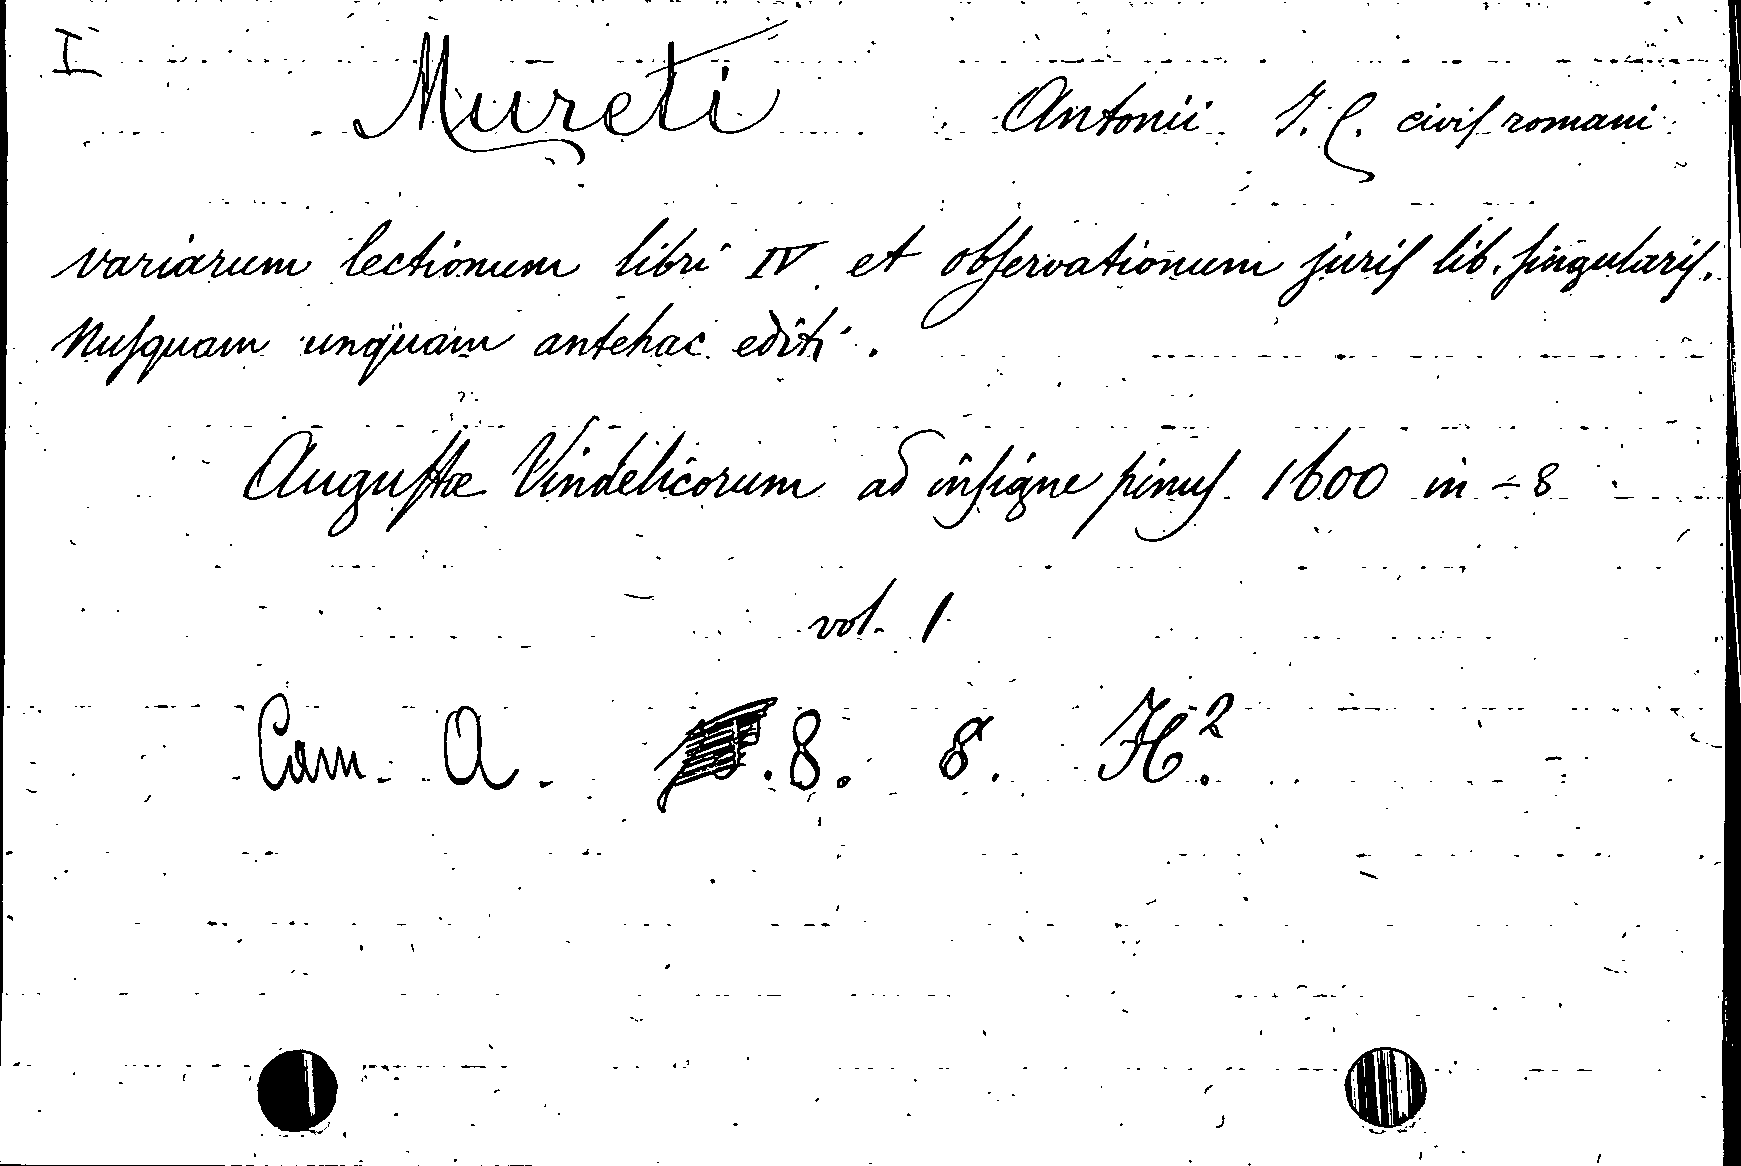 I
Mureti Antonii J. C. civis romani
variarum lectionum libri IV et observationum juris lib. singularis.
Nusquam unquam antehac editi.
Augustæ Vindelicorum ad insigne pinus 1600 in-8
vol. 1
Cam. A. .8. 8. H².